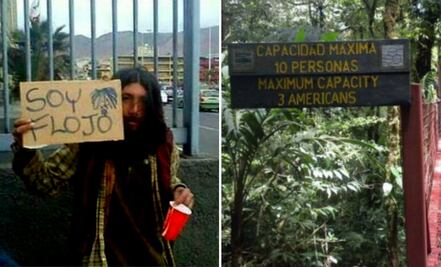 SOY
FLOJO
CAPACIDAD MÁXIMA
10 PERSONAS
MAXIMUM CAPACITY
3 AMERICANS